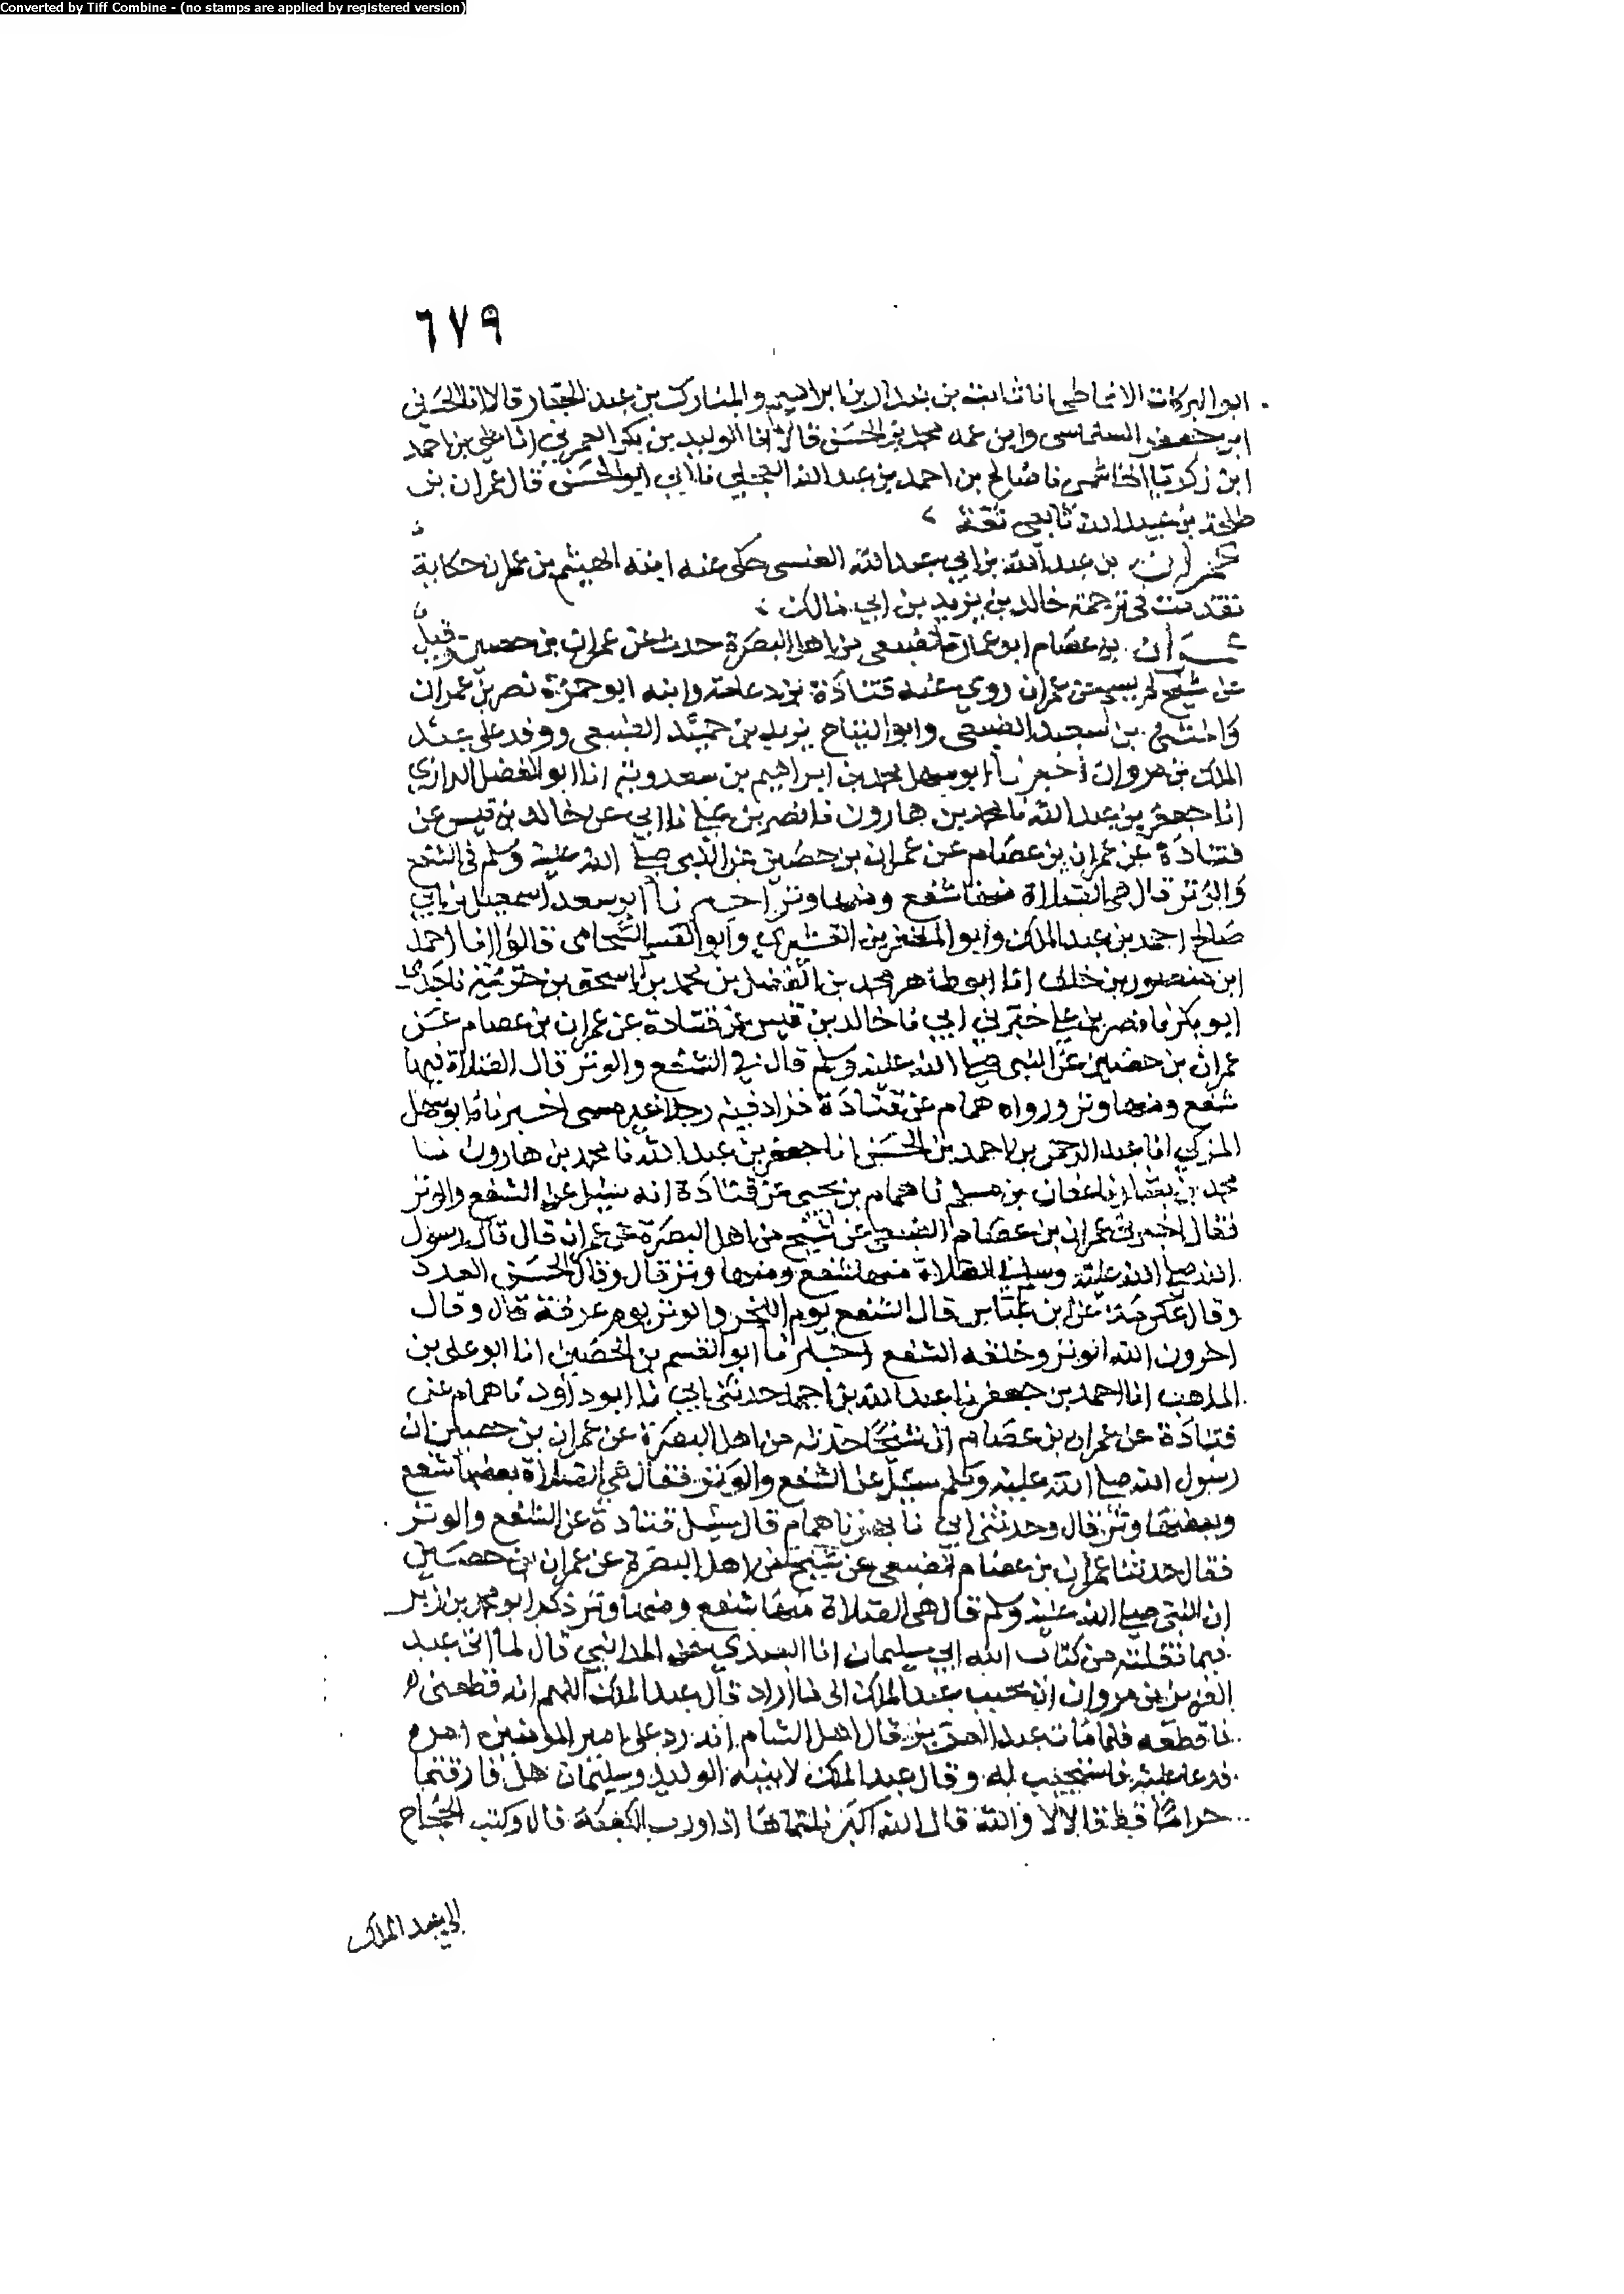 Converted by Tiff Combine - (no stamps are applied by registered version)
٦٧٩
ابو البركات الانماطي انا ثابت بن بندار بن ابراهيم والمبارك بن عبد الجبار قالا انا الحسين
ابن جعفر السلماسي وابن عمه محمد بن الحسن قالا انا الوليد بن بكر العمري انا علي بن احمد
ابن زكريا الهاشمي نا صالح بن احمد بن عبد الله العجلي نا ابي ابو الحسن قال عمران بن
طلحة بن عبيد الله تابعي ثقة
عمران بن عبد الله بن ابي عبد الله العنسي حكى عنه ابنه الهيثم بن عمران حكاية
تقدمت في ترجمة خالد بن يزيد بن ابي مالك
عمران بن عصام ابو عمارة الضبعي من اهل البصرة حدث عن عمران بن حصين وقيل
عن شيخ لم يسم عن عمران روى عنه قتادة بن دعامة وابنه ابو حمزة نصر بن عمران
والمثنى بن سعيد الضبعي وابو التياح يزيد بن حميد الضبعي ووفد على عبد
الملك بن مروان اخبرنا ابو سهل محمد بن ابراهيم بن سعدويه انا ابو الفضل الرازي
انا جعفر بن عبد الله نا محمد بن هارون نا نصر بن علي نا ابي عن خالد بن قيس عن
قتادة عن عمران بن عصام عن عمران بن حصين عن النبي صلى الله عليه وسلم في الشفع
والوتر قال هي الصلاة منها شفع ومنها وتر اخبرنا ابو سعد اسمعيل بن ابي
صالح احمد بن عبد الملك وابو المظفر بن القشيري وابو القسم الشحامي قالوا انا احمد
ابن منصور بن خلف انا ابو طاهر محمد بن الفضل بن محمد بن اسحق بن خزيمة نا جدي
ابو بكر نا نصر بن علي اخبرني ابي نا خالد بن قيس عن قتادة عن عمران بن عصام عن
عمران بن حصين عن النبي صلى الله عليه وسلم قال في الشفع والوتر قال الصلاة فيها
شفع ومنها وتر ورواه همام عن قتادة فزاد فيه رجلا غير مسمى اخبرنا ابو سهل
المزكي انا عبد الرحمن بن احمد بن الحسن انا جعفر بن عبد الله نا محمد بن هارون نا
محمد بن عفان بن مسلم نا همام بن يحيى عن قتادة انه سئل عن الشفع والوتر
فقال اخبرني عمران بن عصام الضبعي عن شيخ من اهل البصرة عن عمران قال قال رسول
الله صلى الله عليه وسلم الصلاة منها شفع ومنها وتر قال وقال الحسن العدد
وقال عكرمة عن ابن عباس قال الشفع يوم النحر والوتر يوم عرفة قال وقال
اخرون الله الوتر وخلقه الشفع اخبرنا ابو القسم بن الحصين انا ابو علي بن
المذهب انا احمد بن جعفر نا عبد الله بن احمد حدثني ابي نا ابو داود نا همام عن
قتادة عن عمران بن عصام ان شيخا حدثه من اهل البصرة عن عمران بن حصين ان
رسول الله صلى الله عليه وسلم سئل عن الشفع والوتر فقال هي الصلاة بعضها شفع
وبعضها وتر قال وحدثني ابي نا بهز نا همام قال سئل قتادة عن الشفع والوتر
فقال حدثنا عمران بن عصام الضبعي عن شيخ من اهل البصرة عن عمران بن حصين
ان النبي صلى الله عليه وسلم قال هي الصلاة منها شفع ومنها وتر ذكر ابو محمد بن زبر
فيما نقلته من كتاب ابنه ابي سليمان انا السدي عن المدائني قال لما ابى عبد
العزيز بن مروان ان يجيب عبد الملك الى ما اراد قال عبد الملك اللهم انه قطعني
فاقطعه فلما مات عبد العزيز قال اهل الشام انه رد على امير المؤمنين امره
فدعا عليه فاستجيب له وقال عبد الملك لابنيه الوليد وسليمان هل قارفتما
حراما قط قالا لا والله قال الله اكبر نلتماها اذا ورب الكعبة قال وكتب الحجاج
الى عبد الملك